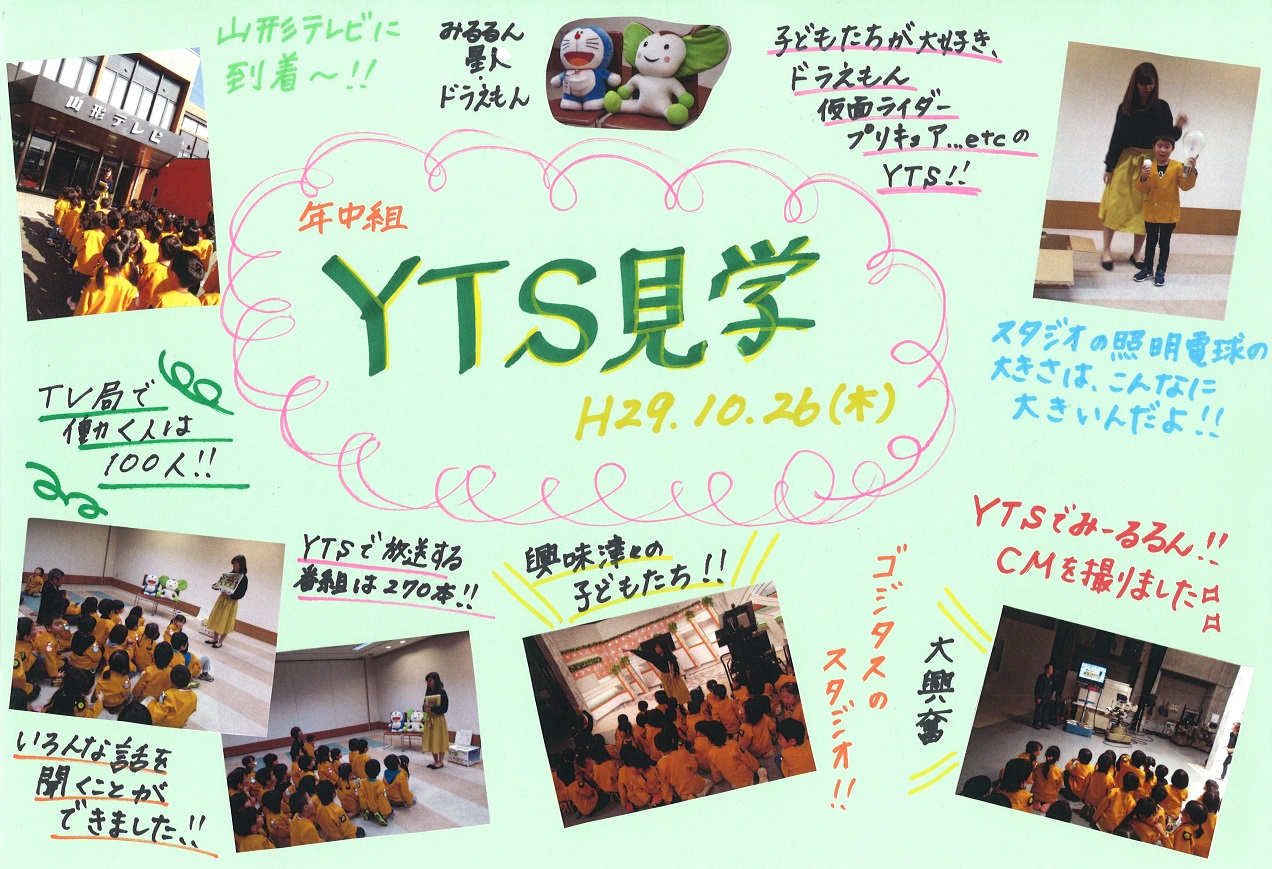 山形テレビに
到着〜!!
山形テレビ
みるるん
星人
・
ドラえもん
子どもたちが大好き、
ドラえもん
仮面ライダー
プリキュア...etcの
YTS!!
年中組
YTS見学
H29.10.26(木)
スタジオの照明電球の
大きさは、こんなに
大きいんだよ!!
TV局で
働く人は
100人!!
YTSで放送する
番組は270本!!
興味津々の
子どもたち!!
ゴジダスの
スタジオ!!
YTSでみーるるん!!
CMを撮りました
大興奮
いろんな話を
聞くことが
できました!!